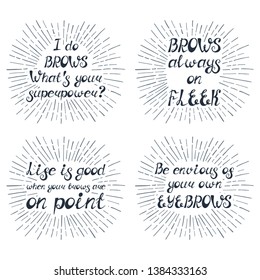 I do
BROWS
What's your
superpower?
BROWS
always
on
FLEEK
Life is good
when your brows are
on point
Be envious of
your own
EYEBROWS
shutterstock.com · 1384333163